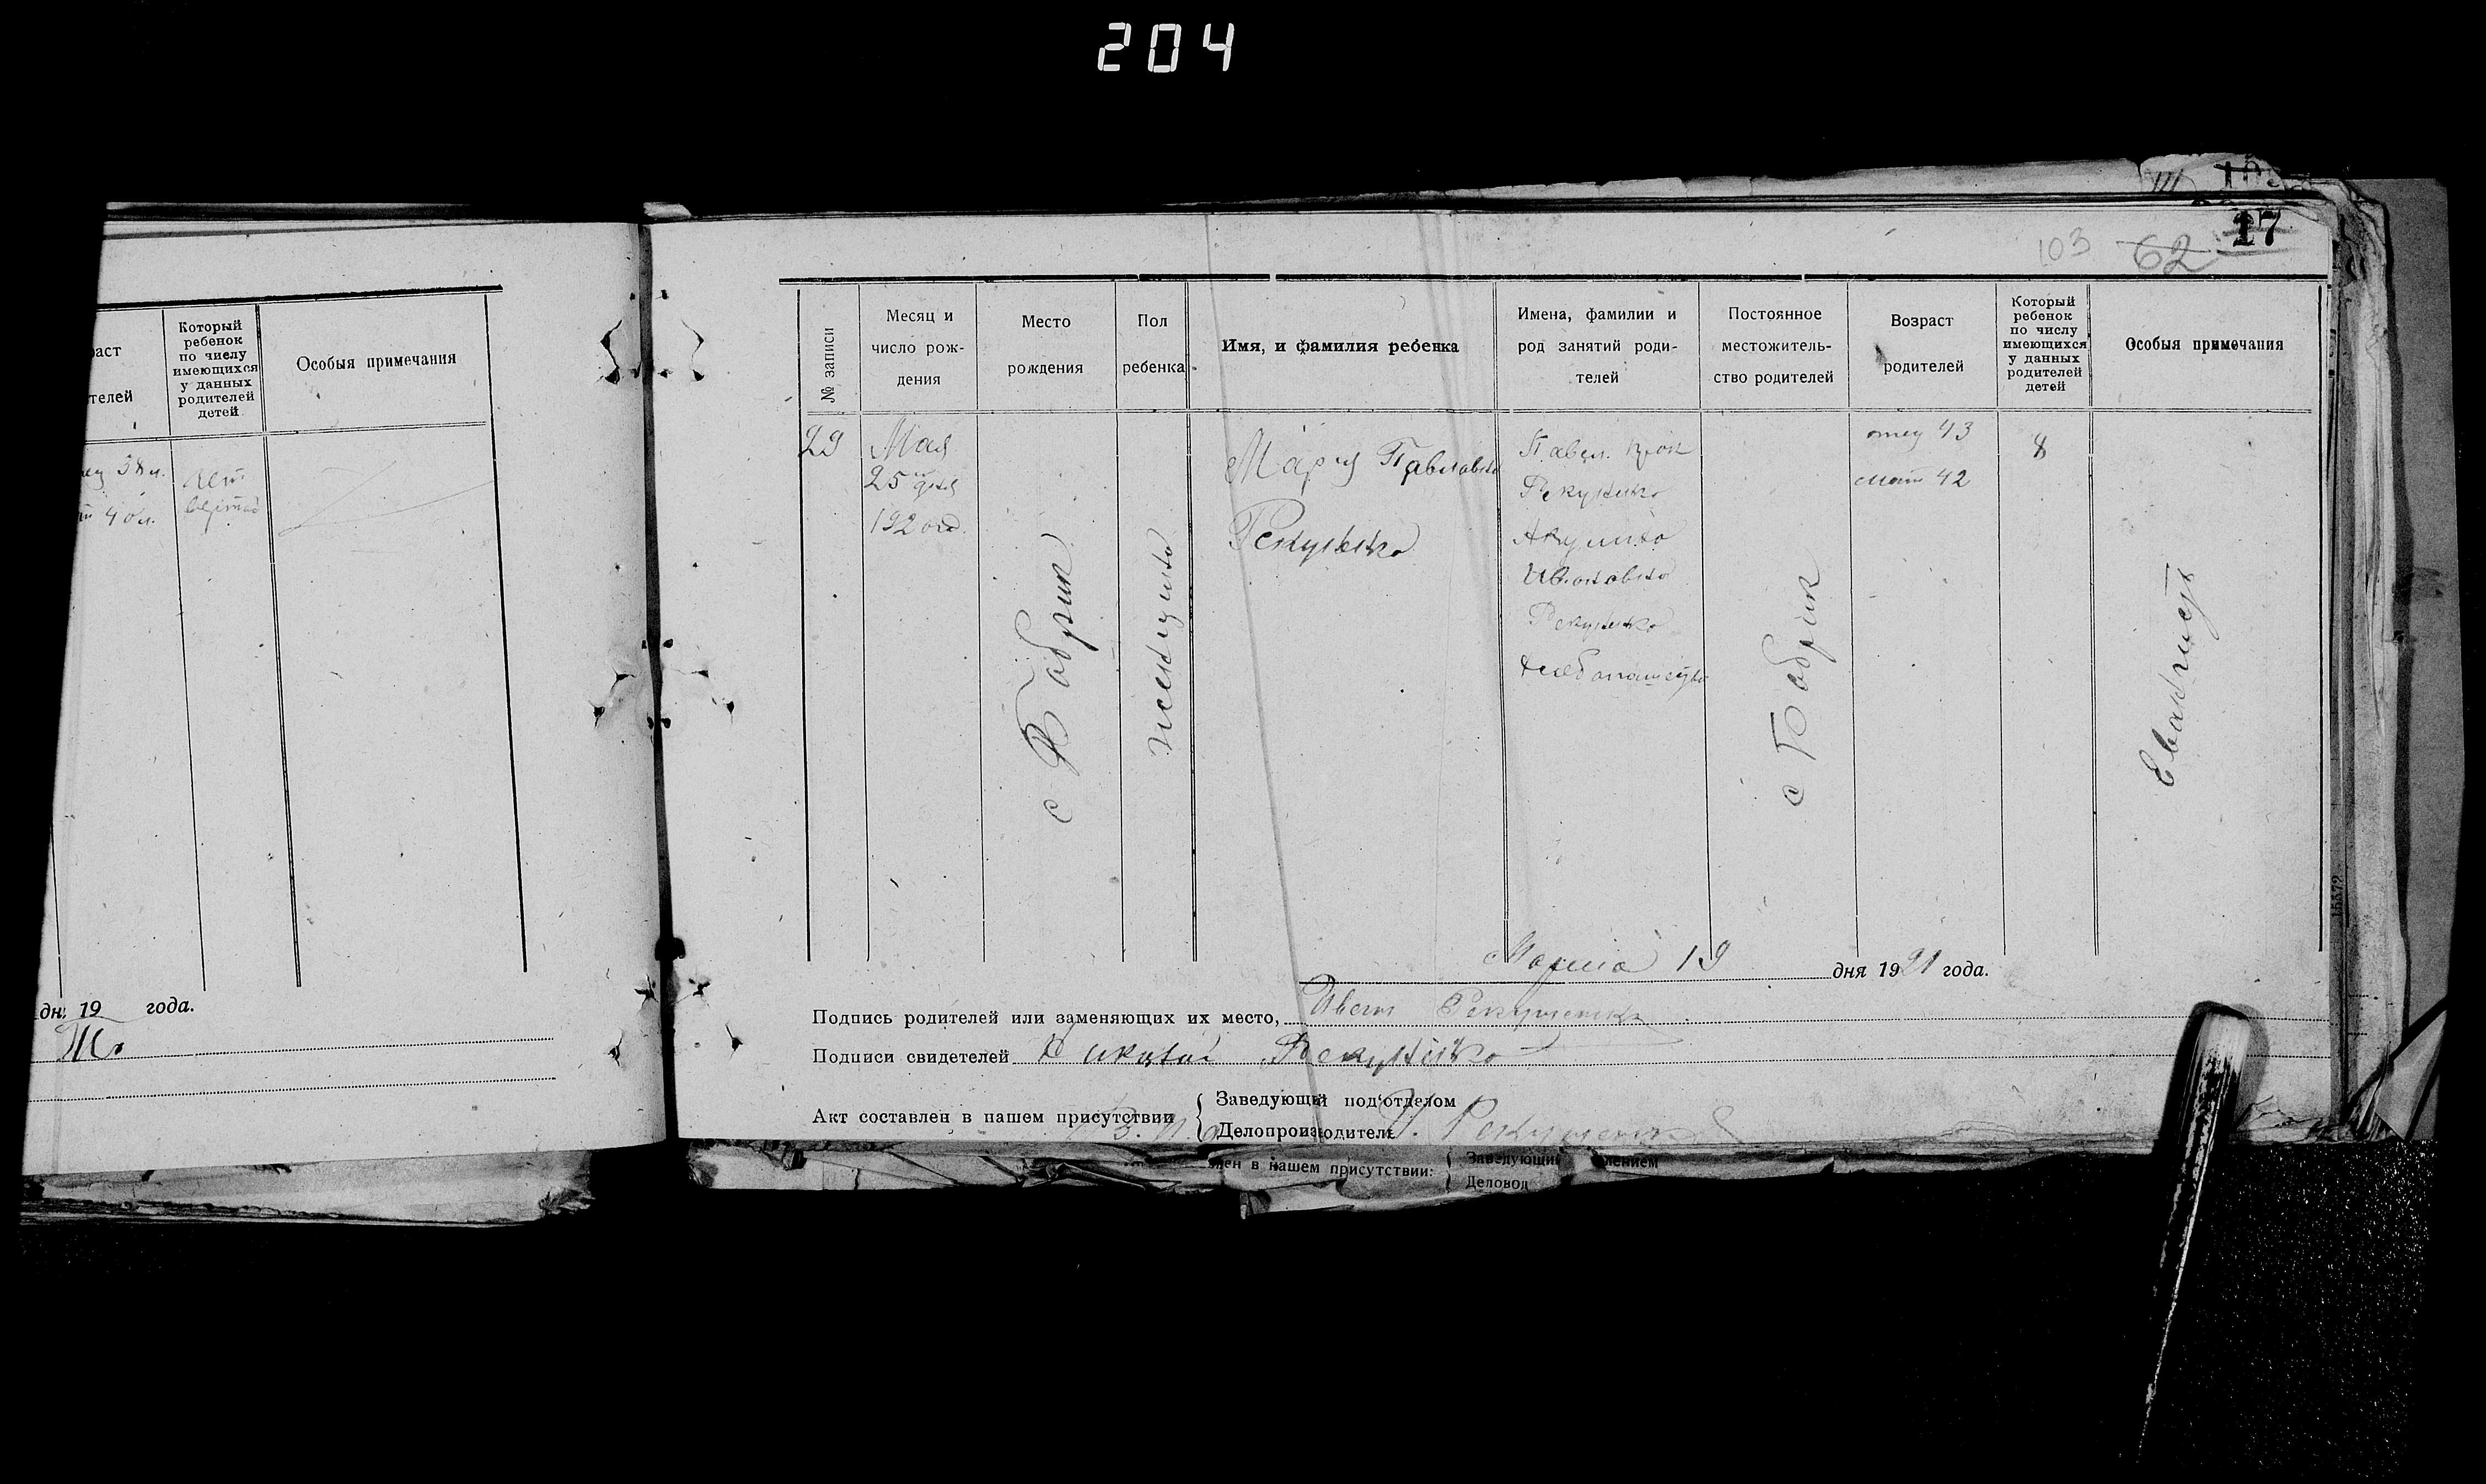 204
17
103 62
раст
телей
Который
ребенок
по числу
имеющихся
у данных
родителей
детей
Особыя примечания
38 л.
40 л.
дн. 19 года.
№ записи
Месяц и
число рож-
дения
Место
рождения
Пол
ребенка
Имя, и фамилия ребенка
Имена, фамилии и
род занятий роди-
телей
Постоянное
местожитель-
ство родителей
Возраст
родителей
Который
ребенок
по числу
имеющихся
у данных
родителей
детей
Особыя примечания
29
Мая
25 дня
192 год.
с Бобрик
женщина
Мария Павловна
Рекуненко
Павел
Рекуненко
Акулина
Ивановна
Рекуненко
хлебопашество
с Бобрик
отец 43
мать 42
8
Евангист
Марта 19 дня 1921 года.
Подпись родителей или заменяющих их место, Иван
Подписи свидетелей Рекуненко
Акт составлен в нашем присутствии
Заведующий под‘отделом
Делопроизводитель
15572
лен в нашем присутствии:
Заведующий лением
Деловод